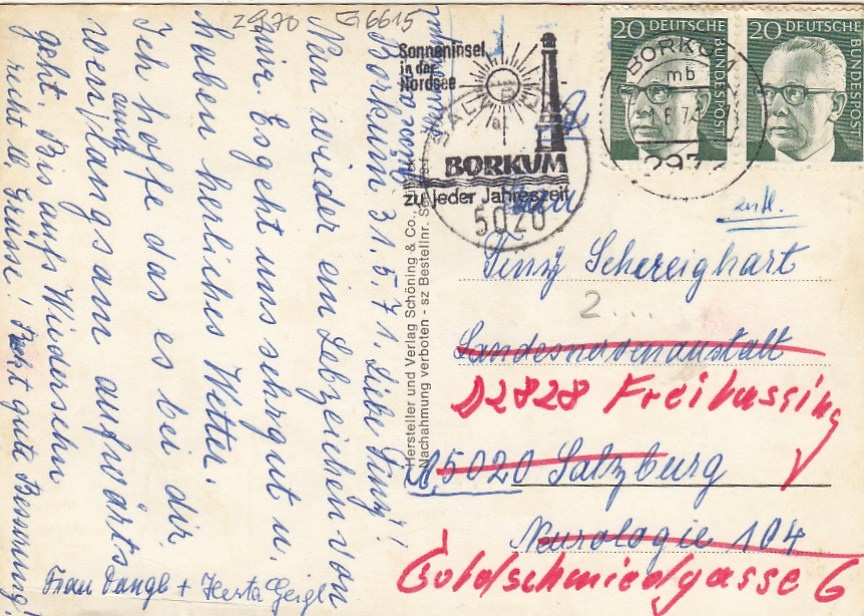 Z 970 G 6615
Borkum 31.5.71. Liebe Finy!
Nun wieder ein Lebzeichen von
mir. Es geht uns sehr gut u.
haben herliches Wetter.
Ich hoffe das es bei dir
auch
wen langsam aufwärts
geht. Bis aufs Wiedersehn
recht l. Grüsse! Recht gute Besserung!
Frau Dangl + Herta Geigl
Hersteller und Verlag Schöning & Co.,
Nachahmung verboten - sz Bestellnr.
Sonneninsel
in der
Nordsee
BORKUM
zu jeder Jahreszeit
5020
20 DEUTSCHE
BUNDESPOST
20 DEUTSCHE
BUNDESPOST
BORKUM
mb
297
Frau
Finy Schereighart
2...
Landesnervenanstalt
D2828 Freilassing
A, 5020 Salzburg
Neurologie 104
Goldschmiedgasse 6